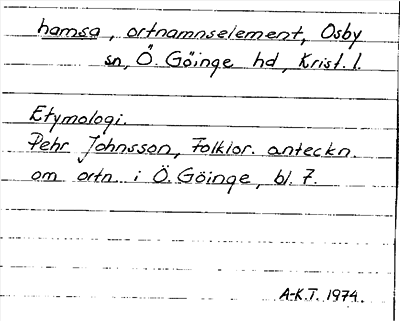 hamsa, ortnamnselement, Osby
sn, Ö. Göinge hd, Krist. l.
Etymologi.
Pehr Johnsson, Folklor. anteckn.
om ortn. i Ö. Göinge, bl. 7.
A-K.T. 1974.